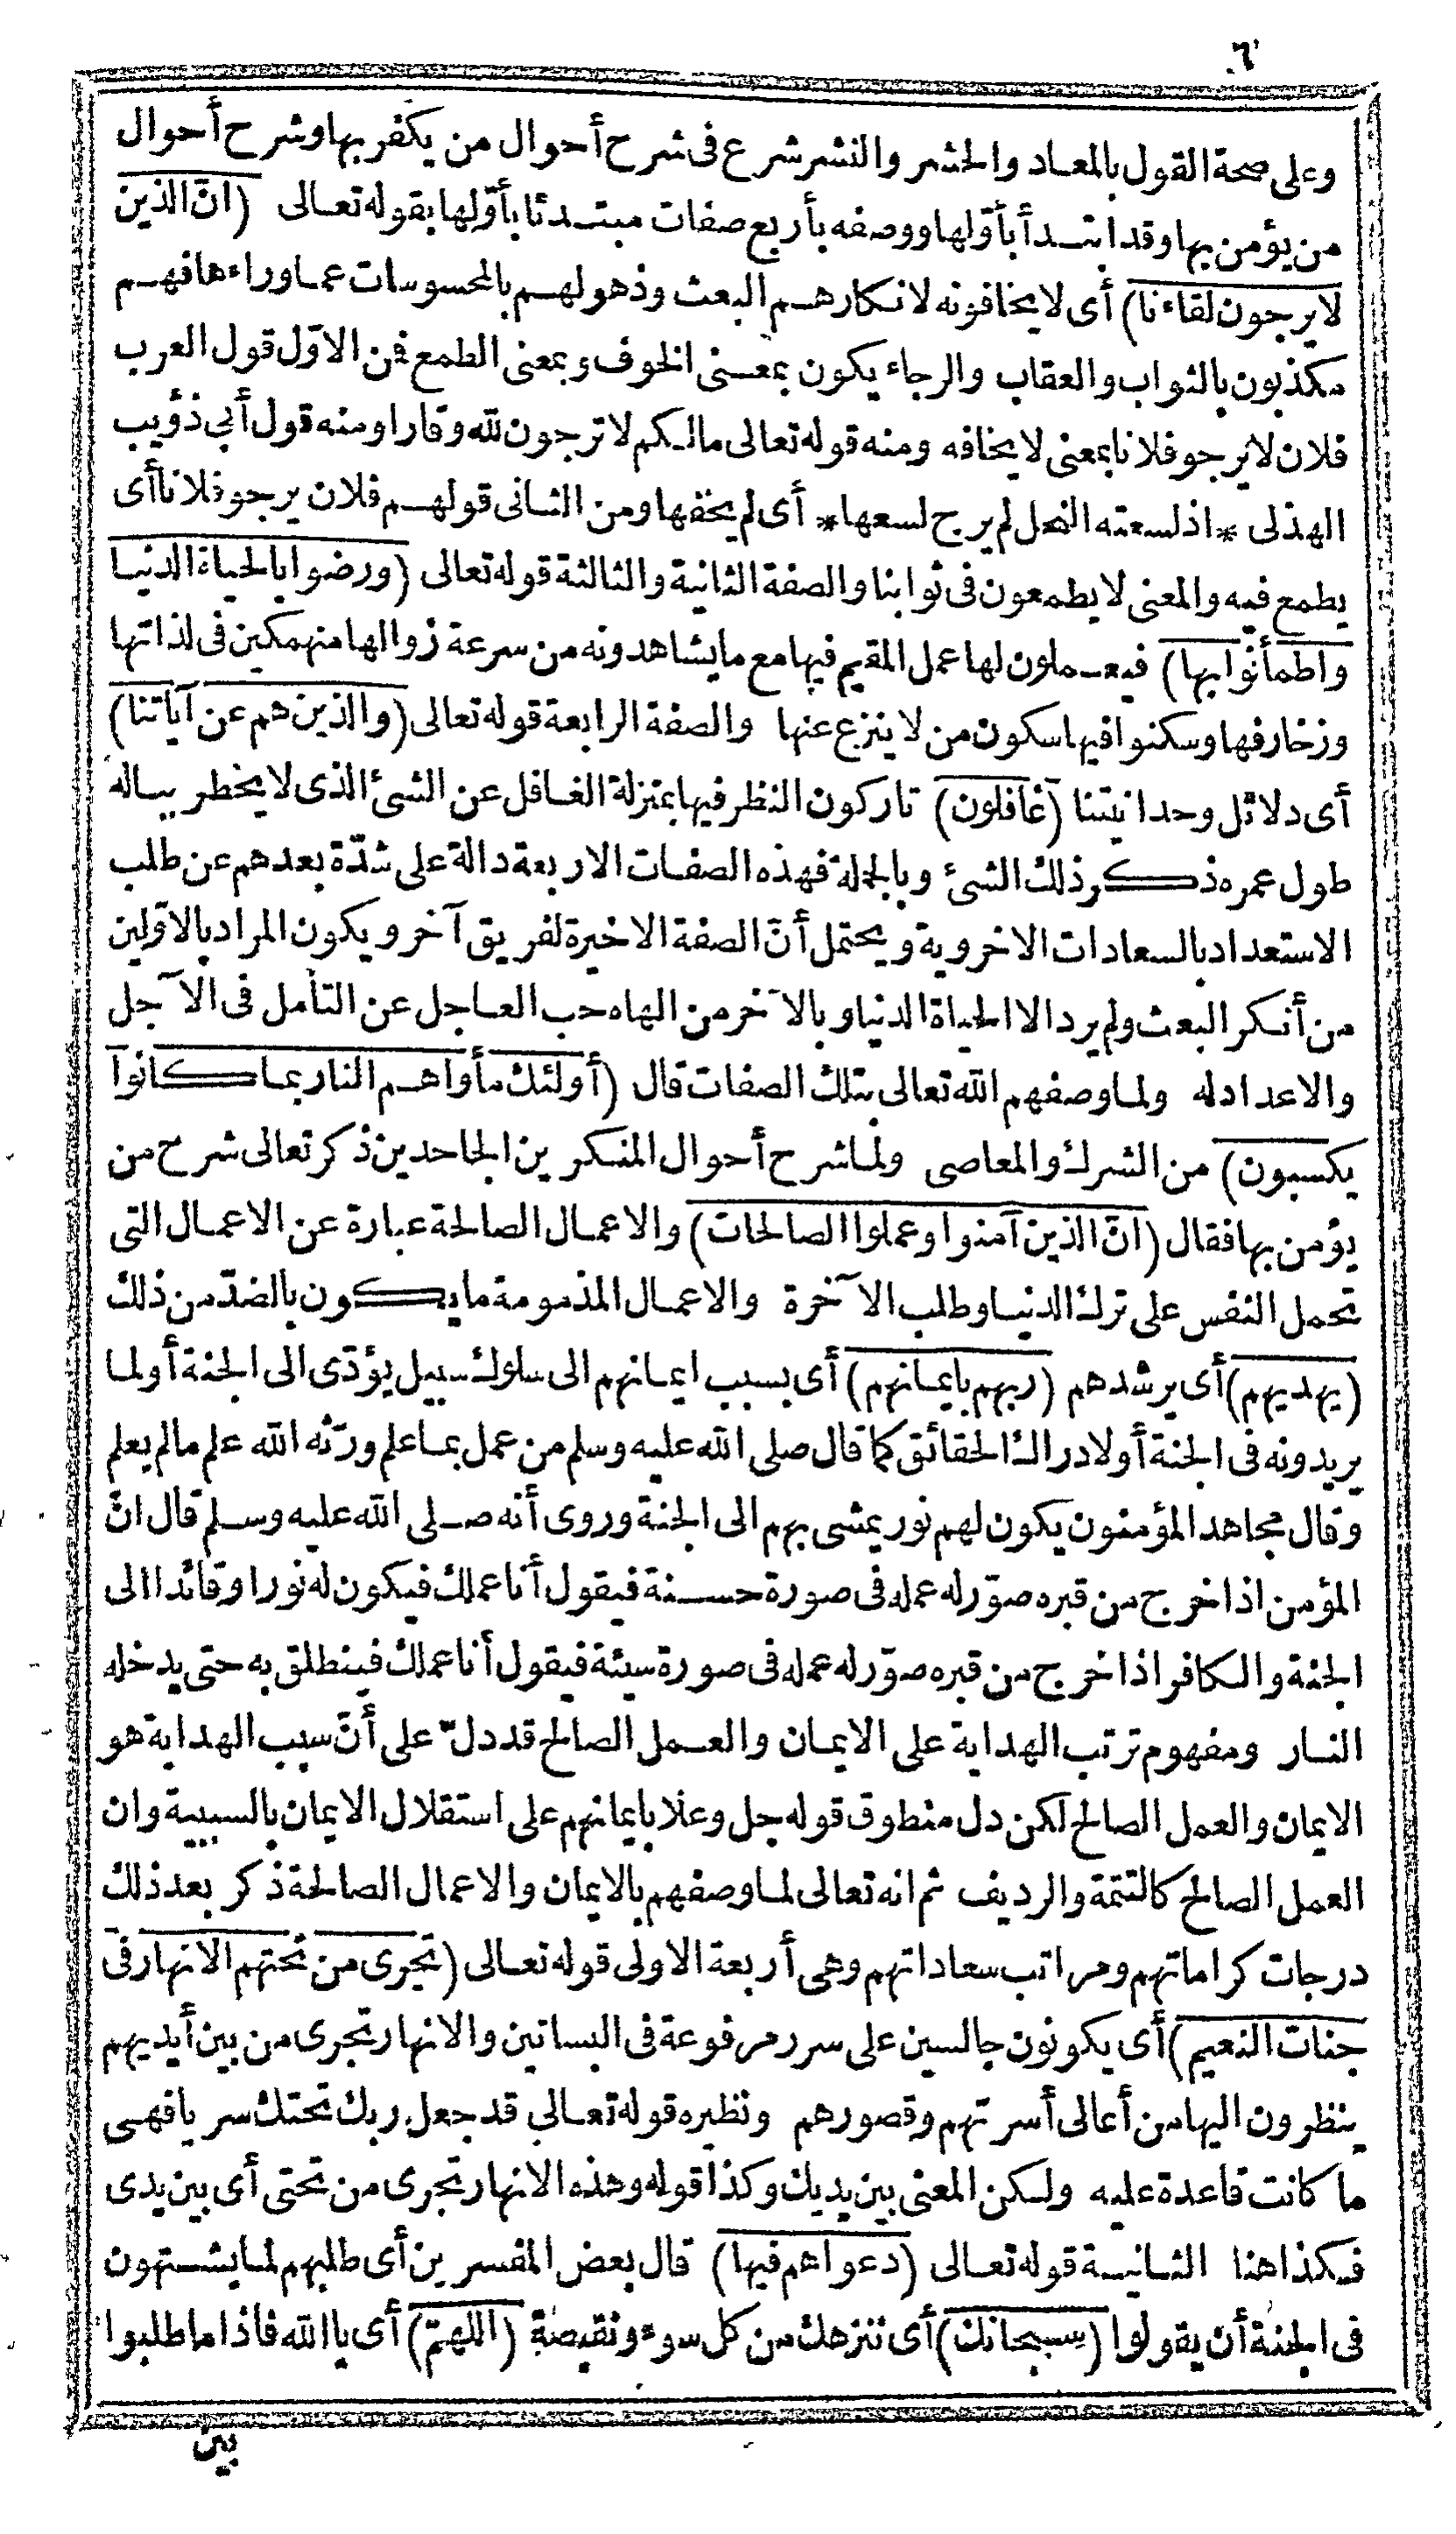 ٦
وعلى صحة القول بالمعاد والحشر والنشر شرع فى شرح أحوال من يكفر بها وشرح أحوال
من يؤمن بها وقد ابتدأ بأوّلها ووصفه بأربع صفات مبتدئا بأوّلها بقوله تعالى (انّ الذين
لا يرجون لقاءنا) أى لا يخافونه لانكارهم البعث وذهولهم بالمحسوسات عما وراءها فهم
مكذبون بالثواب والعقاب والرجاء يكون بمعنى الخوف وبمعنى الطمع فمن الاوّل قول العرب
فلان لا يرجو فلانا بمعنى لا يخافه ومنه قوله تعالى مالكم لا ترجون لله وقارا ومنه قول أبى ذؤيب
الهذلى * اذ لسعته النحل لم يرج لسعها * أى لم يخفها ومن الثانى قولهم فلان يرجو فلانا أى
يطمع فيه والمعنى لا يطمعون فى ثوابنا والصفة الثانية والثالثة قوله تعالى (ورضوا بالحياة الدنيا
واطمأنوا بها) فيعملون لها عمل المقيم فيها مع ما يشاهدونه من سرعة زوالها منهمكين فى لذاتها
وزخارفها وسكنوا فيها سكون من لا ينزعج عنها والصفة الرابعة قوله تعالى (والذين هم عن آياتنا)
أى دلائل وحدانيتنا (غافلون) تاركون النظر فيها بمنزلة الغافل عن الشئ الذى لا يخطر بباله
طول عمره ذكر ذلك الشئ وبالجملة فهذه الصفات الاربعة دالة على شدّة بعدهم عن طلب
الاستعداد بالسعادات الاخروية ويحتمل أنّ الصفة الاخيرة لفريق آخر ويكون المراد بالاوّلين
من أنكر البعث ولم يرد الا الحياة الدنيا وبالآخر من الهاه حب العاجل عن التأمل فى الآجل
والاعداد له ولما وصفهم الله تعالى بتلك الصفات قال (أولئك مأواهم النار بما كانوا
يكسبون) من الشرك والمعاصى ولما شرح أحوال المنكرين الجاحدين ذكر تعالى شرح من
يؤمن بها فقال (انّ الذين آمنوا وعملوا الصالحات) والاعمال الصالحة عبارة عن الاعمال التى
تحمل النفس على ترك الدنيا وطلب الآخرة والاعمال المذمومة ما يكون بالضدّ من ذلك
(يهديهم) أى يرشدهم (ربهم بايمانهم) أى بسبب ايمانهم الى سلوك سبيل يؤدّى الى الجنة أو لما
يريدونه فى الجنة أو لادراك الحقائق كما قال صلى الله عليه وسلم من عمل بما علم ورّثه الله علم ما لم يعلم
وقال مجاهد المؤمنون يكون لهم نور يمشى بهم الى الجنة وروى أنه صلى الله عليه وسلم قال انّ
المؤمن اذا خرج من قبره صوّر له عمله فى صورة حسنة فيقول أنا عملك فيكون له نورا وقائدا الى
الجنة والكافر اذا خرج من قبره صوّر له عمله فى صورة سيئة فيقول أنا عملك فينطلق به حتى يدخله
النار ومفهوم ترتب الهداية على الايمان والعمل الصالح قد دلّ على أنّ سبب الهداية هو
الايمان والعمل الصالح لكن دل منطوق قوله جل وعلا بايمانهم على استقلال الايمان بالسببية وان
العمل الصالح كالتتمة والرديف ثم انه تعالى لما وصفهم بالايمان والاعمال الصالحة ذكر بعد ذلك
درجات كراماتهم ومراتب سعاداتهم وهى أربعة الاولى قوله تعالى (تجرى من تحتهم الانهار فى
جنات النعيم) أى يكونون جالسين على سرر مرفوعة فى البساتين والانهار تجرى من بين أيديهم
ينظرون اليها من أعالى أسرتهم وقصورهم ونظيره قوله تعالى قد جعل ربك تحتك سريا فهى
ما كانت قاعدة عليه ولكن المعنى بين يديك وكذا قوله وهذه الانهار تجرى من تحتى أى بين يدى
فكذا هنا الثانية قوله تعالى (دعواهم فيها) قال بعض المفسرين أى طلبهم لما يشتهون
فى الجنة أن يقولوا (سبحانك) أى ننزهك من كل سوء ونقيصة (اللهمّ) أى يا الله فاذا ما طلبوا
بين